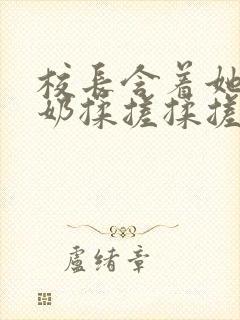 校长含着她
奶揉搓揉搓
盧绪章